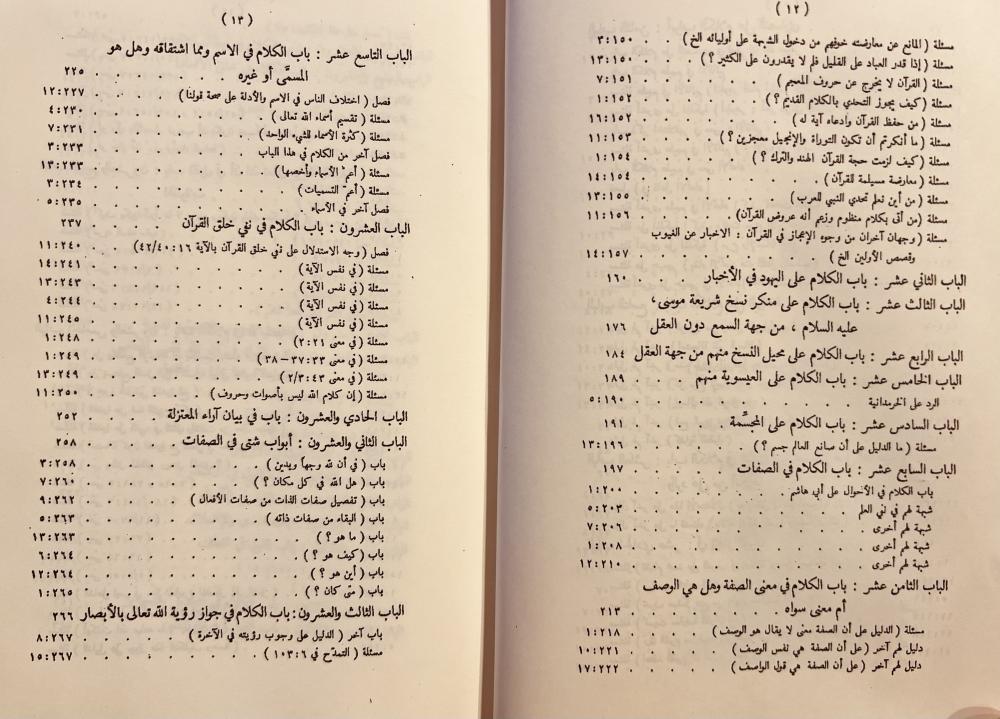 ( ١٢ )
مسئلة ( المانع عن معارضته خوفهم من دخول الشبهة على أوليائه الخ ) . . ٣:١٥٠
مسئلة ( إذا قدر العباد على القليل فلم لا يقدرون على الكثير ؟ ) . . . ١٣:١٥٠
مسئلة ( القرآن لا يخرج عن حروف المعجم ) . . . . . . ٧:١٥١
مسئلة ( كيف يجوز التحدي بالكلام القديم ؟ ) . . . . . . ١:١٥٢
مسئلة ( من حفظ القرآن وادعاه آية له ) . . . . . . ١٦:١٥٢
مسئلة ( ما أنكرتم أن تكون التوراة والإنجيل معجزين ؟ ) . . . . ١١:١٥٣
مسئلة ( كيف لزمت حجة القرآن الهند والترك ؟ ) . . . . . ١:١٥٤
مسئلة ( معارضة مسيلمة للقرآن ) . . . . . . . ١٤:١٥٤
مسئلة ( من أين نعلم تحدي النبي للعرب ) . . . . . . ١٣:١٥٥
مسئلة (من أتى بكلام منظوم وزعم أنه عروض القرآن) . . . . ١١:١٥٦
مسئلة ( وجهان آخران من وجوه الإعجاز في القرآن : الاخبار عن الغيوب
وقصص الأولين الخ ) . . . . . . . ١٤:١٥٧
الباب الثاني عشر : باب الكلام على اليهود في الأخبار . . ١٦٠
الباب الثالث عشر : باب الكلام على منكر نسخ شريعة موسى،
عليه السلام ، من جهة السمع دون العقل ١٧٦
الباب الرابع عشر : باب الكلام على محيل النسخ منهم من جهة العقل ١٨٤
الباب الخامس عشر : باب الكلام على العيسوية منهم . . . . ١٨٩
الرد على الخرمدانية . . . . . . . . ٥:١٩٠
الباب السادس عشر : باب الكلام على المجسّمة . . . . . ١٩١
مسئلة ( ما الدليل على أن صانع العالم جسم ؟ ) . . . . . ١٣:١٩٦
الباب السابع عشر : باب الكلام في الصفات . . . . . ١٩٧
باب الكلام في الأحوال على أبي هاشم . . . . . . ١:٢٠٠
شبهة لهم في نفي العلم . . . . . . . . ٥:٢٠٣
شبهة لهم أخرى . . . . . . . . . ٧:٢٠٦
شبهة لهم أخرى . . . . . . . . . ١:٢٠٨
شبهة لهم أخرى . . . . . . . . . ١٢:٢١٠
الباب الثامن عشر : باب الكلام في معنى الصفة وهل هي الوصف
أم معنى سواه . . . . . . . ٢١٣
مسئلة ( الدليل على أن الصفة معنى لا يقال هو الوصف ) . . . . ١:٢١٨
دليل لهم آخر ( على أن الصفة هي نفس الوصف ) . . . . ١٠:٢٢١
دليل لهم آخر ( على أن الصفة هي قول الواصف ) . . . . ١٧:٢٢٢
( ١٣ )
الباب التاسع عشر : باب الكلام في الاسم ومما اشتقاقه وهل هو
المسمَّى أو غيره . . . . . . . ٢٢٥
فصل ( اختلاف الناس في الاسم والأدلة على صحة قولنا ) . . . ١٢:٢٢٧
مسئلة ( تقسيم أسماء الله تعالى ) . . . . . . . ٤:٢٣٠
مسئلة ( كثرة الأسماء للشيء الواحد ) . . . . . . ٧:٢٣١
فصل آخر من الكلام في هذا الباب . . . . . . ٣:٢٣٣
مسئلة ( أعمّ الأسماء وأخصها ) . . . . . . . ١٣:٢٣٣
مسئلة ( أعمّ التسميات ) . . . . . . . . ٣:٢٣٤
فصل آخر في الأسماء . . . . . . . . ٥:٢٣٥
الباب العشرون : باب الكلام في نفي خلق القرآن . . . . ٢٣٧
فصل ( وجه الاستدلال على نفي خلق القرآن بالآية ٤٢/٤٠:١٦ ) . . ١١:٢٤٠
مسئلة ( في نفس الآية ) . . . . . . . . ١٤:٢٤١
مسئلة ( في نفس الآية ) . . . . . . . . ١٣:٢٤٣
مسئلة ( في نفس الآية ) . . . . . . . . ٤:٢٤٤
مسئلة ( في نفس الآية ) . . . . . . . . ١١:٢٤٥
مسئلة ( في معنى ٢:٢١ ) . . . . . . . . ١:٢٤٨
مسئلة ( في معنى ٣٧:٣٣ – ٣٨ ) . . . . . . . ١:٢٤٩
مسئلة ( في معنى ٢/٣:٤٣ ) . . . . . . . . ١٣:٢٤٩
مسئلة ( إن كلام الله ليس بأصوات وحروف ) . . . . . ١١:٢٥٠
الباب الحادي والعشرون : باب في بيان آراء المعتزلة . . . . ٢٥٢
الباب الثاني والعشرون : أبواب شتى في الصفات . . . . . ٢٥٨
باب ( في أن لله وجهاً ويدين ) . . . . . . . ٣:٢٥٨
باب ( هل الله في كل مكان ؟ ) . . . . . . . ٧:٢٦٠
باب ( تفصيل صفات الذات من صفات الأفعال ) . . . . . ٩:٢٦٢
باب ( البقاء من صفات ذاته ) . . . . . . . ٥:٢٦٣
باب ( ما هو ؟ ) . . . . . . . . . ١٣:٢٦٣
باب ( كيف هو ؟ ) . . . . . . . . . ٦:٢٦٤
باب ( أين هو ؟ ) . . . . . . . . . ١٢:٢٦٤
باب ( متى كان ؟ ) . . . . . . . . . ١:٢٦٥
الباب الثالث والعشرون : باب الكلام في جواز رؤية الله تعالى بالأبصار ٢٦٦
باب آخر ( الدليل على وجوب رؤيته في الآخرة ) . . . . ٨:٢٦٧
مسئلة ( التمدّح في ١٠٣:٦ ) . . . . . . . ١٥:٢٦٧